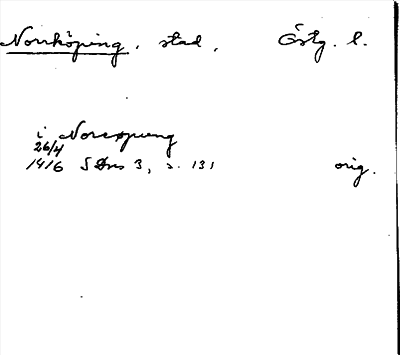 Norrköping, stad, Östg. l.
i Norcøpung
26/4
1416 SDns 3, s. 131 orig.